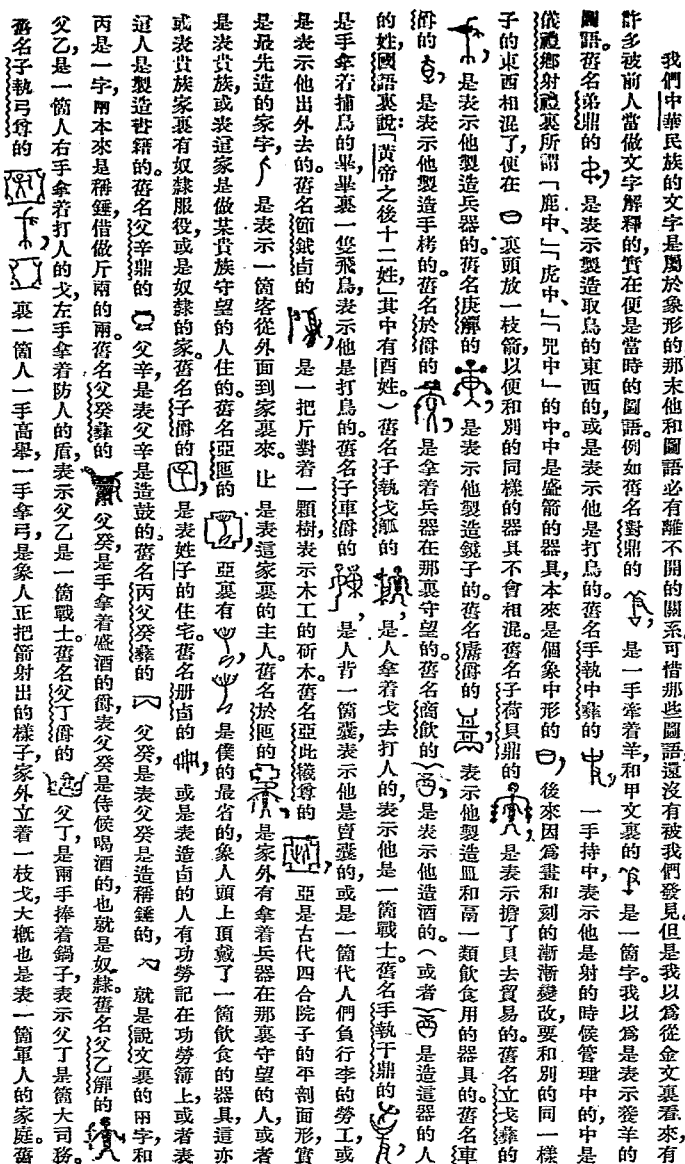 我們中華民族的文字是屬於象形的那末他和圖語必有離不開的關系可惜那些圖語還沒有被我們發見。但是我以爲從金文裏看來,有
許多被前人當做文字解釋的,實在便是當時的圖語。例如舊名對鼎的 是一手牽着羊和甲文裏的 是一箇字。我以爲是表示養羊的
圖語。舊名弟鼎的 是表示製造取鳥的東西的,或是表示他是打鳥的。舊名手執中彝的 一手持中,表示他是射的時候管理中的,中是
儀禮鄉射禮裏所謂「鹿中」「虎中」「兕中」的中。中是盛箭的器具,本來是個象中形的 後來因爲畫和刻的漸漸變改,要和別的同一樣
子的東西相混了,便在 裏頭放一枝箭,以便和別的同樣的器具不會相混。舊名子荷貝鼎的 是表示擔了貝去貿易的。舊名立戈彝的
是表示他製造兵器的。舊名庚觶的 是表示他製造鐃子的。舊名爵的 表示他製造皿和鬲一類飲食用的器具的。舊名車
爵的 是表示他製造手栲的。舊名於爵的 是拿着兵器在那裏守望的。舊名商飲的 是表示他造酒的。(或者 是造這器的人
的姓,國語裏說:「黃帝之後十二姓」其中有酉姓。)舊名子執戈觚的 是人拿着戈去打人的,表示他是一箇戰士。舊名手執干鼎的
是手拿着捕鳥的畢,畢裏一隻飛鳥,表示他是打鳥的。舊名子車爵的 是人背一箇橐,表示他是賣橐的,或是一箇代人們負行李的勞工,或
是表示他出外去的。舊名節鉞卣的 是一把斤對着一顆樹,表示木工的斫木。舊名亞此尊的 亞是古代四合院子的平剖面形,實
是最先造的家字, 是表示一箇客從外面到家裏來。止 是表這家裏的主人。舊名於匜的 是家外有拿着兵器在那裏守望的人,或者
是表貴族,或表這家是做某貴族守望的人住的。舊名亞匜的 亞裏有 是僕的最省的,象人頭上頂戴了一箇飲食的器具,這亦
或表貴族家裏有奴隸服役,或是奴隸的家。舊名子爵的 是表姓子的住宅。舊名册卣的 或是表造卣的人有功勞記在功勞簿上,或者表
這人是製造書籍的。舊名父辛鼎的 父辛是表父辛是造鼓的。舊名丙父癸彝的 父癸是表父癸是造稱錘的, 就是說文裏的㒳字,和
丙是一字,㒳本來是稱錘,借做斤兩的兩。舊名父癸彝的 父癸是手拿着盛酒的爵,表父癸是侍候喝酒的,也就是奴隸。舊名父乙觶的
父乙,是一箇人右手拿着打人的戈,左手拿着防人的盾,表示父乙是一箇戰士。舊名父丁爵的 父丁,是兩手捧着鍋子,表示父丁是箇大司務。
舊名子執弓尊的 裏一箇人一手高舉,一手拿弓,是象人正把箭射出的樣子,家外立着一枝戈,大概也是表一箇軍人的家庭。舊